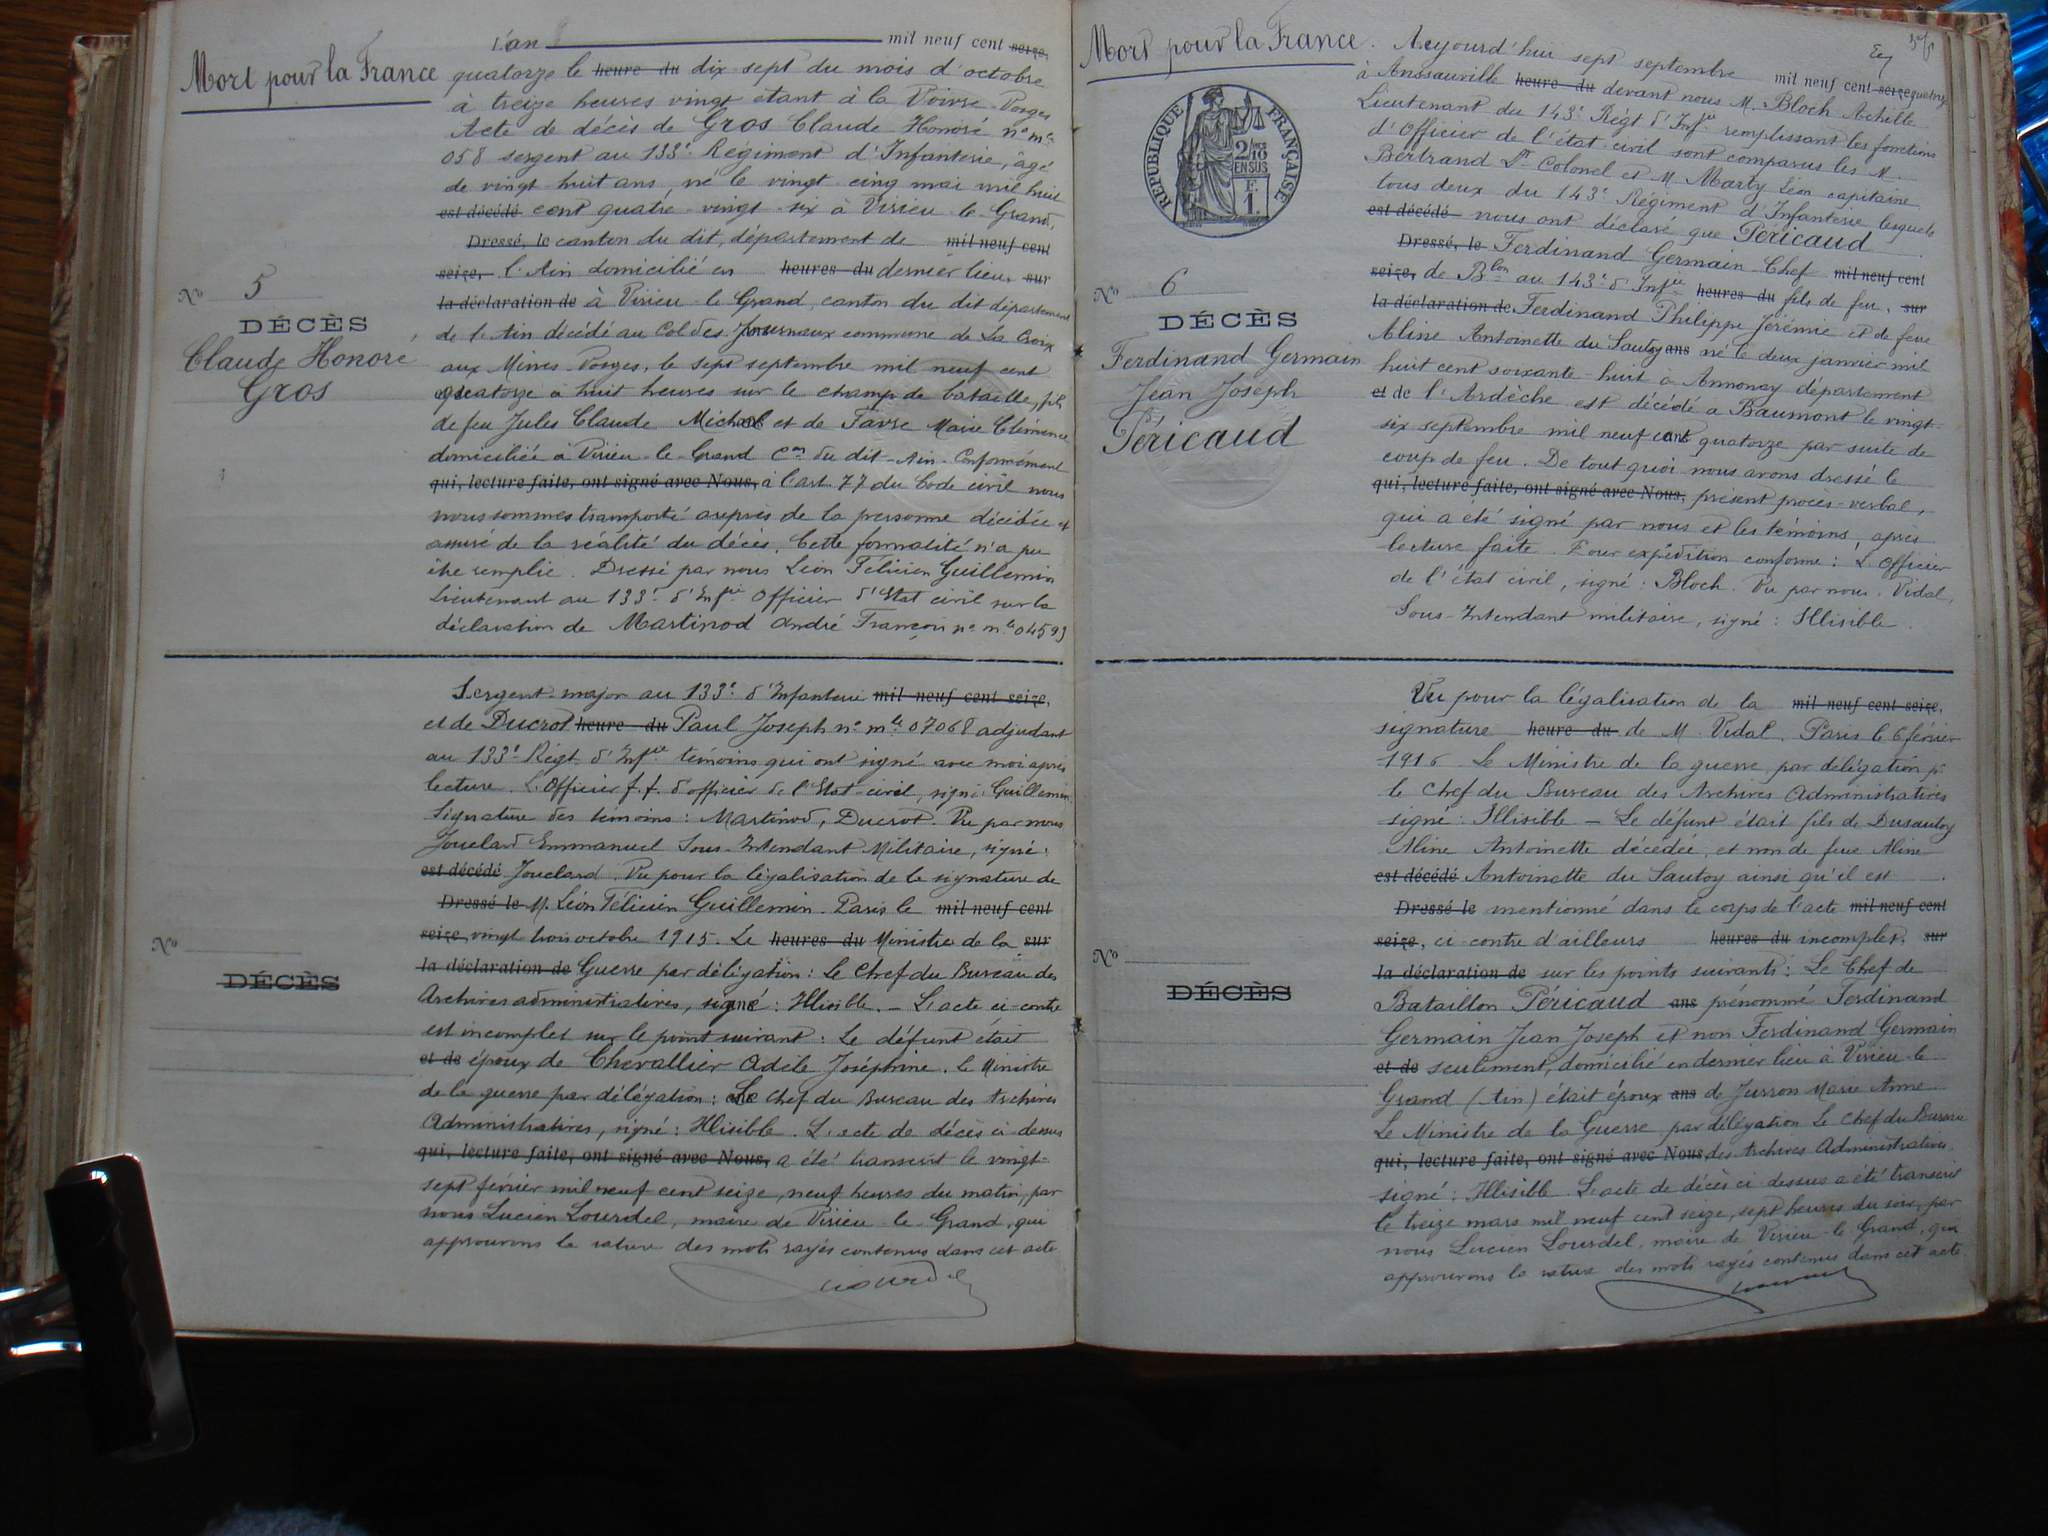 Mort pour la France
L'an mil neuf cent seize,
quatorze le heure du dix sept du mois d'octobre
à treize heures vingt étant à la Voivre Vosges
Acte de décès de Gros Claude Honoré n° mle
058 sergent au 133e Régiment d'Infanterie, âgé
de vingt huit ans, né le vingt cinq mai mil huit
est décédé cent quatre-vingt-six à Virieu-le-Grand,
Dressé, le canton du dit, département de mil neuf cent
seize, l'Ain domicilié en heures du dernier lieu, sur
la déclaration de à Virieu-le-Grand, canton du dit département
de l'Ain décédé au Col des Journaux commune de La Croix
aux Mines Vosges, le sept septembre mil neuf cent
quatorze à huit heures sur le champ de bataille, fils
de feu Jules Claude Michel et de Favre Marie Clémence
domiciliée à Virieu-le-Grand Con du dit Ain. Conformément
qui, lecture faite, ont signé avec Nous, à l'art. 77 du Code civil nous
nous sommes transporté auprès de la personne décédée et
assuré de la réalité du décès. Cette formalité n'a pu
être remplie. Dressé par nous Léon Félicien Guillemin
Lieutenant au 133e d'Infie Officier d'Etat civil sur la
déclaration de Martinod André François n° mle 04593
N° 5
DÉCÈS
Claude Honoré
Gros
Sergent-major au 133e d'Infanterie mil neuf cent seize,
et de Ducrot heure du Paul Joseph n° mle 07068 adjudant
au 133e Régt d'Infie témoins qui ont signé avec moi après
lecture. L'Officier f.f. d'officier de l'Etat-civil, signé: Guillemin
Signature des témoins: Martinod, Ducrot. Vu par nous
Jouclard Emmanuel Sous-Intendant Militaire, signé:
est décédé Jouclard. Vu pour la légalisation de la signature de
Dressé le M. Léon Félicien Guillemin. Paris le mil neuf cent
seize, vingt trois octobre 1915. Le heures du Ministre de la sur
la déclaration de Guerre par délégation: Le Chef du Bureau des
Archives administratives, signé: Illisible. — L'acte ci-contre
est incomplet sur le point suivant: Le défunt était
et de époux de Chevallier Adèle Joséphine. le Ministre
de la guerre par délégation: Le Chef du Bureau des Archives
Administratives, signé: Illisible. L'acte de décès ci-dessus
qui, lecture faite, ont signé avec Nous, a été transcrit le vingt-
sept février mil neuf cent seize, neuf heures du matin, par
nous Lucien Lourdel, maire de Virieu-le-Grand, qui
approuvons la rature des mots rayés contenus dans cet acte
Lourdel
N°
DÉCÈS
Mort pour la France.
Aujourd'hui sept septembre mil neuf cent seize quatorze
à Anssauville heure du devant nous M. Bloch Achille
Lieutenant du 143e Régt d'Infie remplissant les fonctions
d'Officier de l'état-civil sont comparus les M.
Bertrand Lt Colonel et M Marty Léon capitaine
tous deux du 143e Régiment d'Infanterie lesquels
est décédé nous ont déclaré que Péricaud
Dressé, le Ferdinand Germain Chef mil neuf cent
seize, de Blon au 143e d'Infie heures du fils de feu, sur
la déclaration de Ferdinand Philippe Jérémie et de feue
Aline Antoinette du Sautoy ans né le deux janvier mil
huit cent soixante-huit à Annonay département
et de de l'Ardèche est décédé à Baumont le vingt-
six septembre mil neuf cent quatorze par suite de
coup de feu. De tout quoi nous avons dressé le
qui, lecture faite, ont signé avec Nous, présent procès-verbal,
qui a été signé par nous et les témoins, après
lecture faite. Pour expédition conforme: L'Officier
de l'état civil, signé: Bloch. Vu par nous. Vidal,
Sous-Intendant militaire, signé: Illisible.
RÉPUBLIQUE FRANÇAISE
2/10
EN SUS
F.
1.
N° 6
DÉCÈS
Ferdinand Germain
Jean Joseph
Péricaud
Vu pour la légalisation de la mil neuf cent seize,
signature heure du de M. Vidal. Paris le 6 février
1916 Le Ministre de la guerre par délégation pr
le Chef du Bureau des Archives Administratives
signé: Illisible — Le défunt était fils de Dusautoy
Aline Antoinette décédée, et non de feue Aline
est décédé Antoinette du Sautoy ainsi qu'il est
Dressé le mentionné dans le corps de l'acte mil neuf cent
seize, ci-contre d'ailleurs heures du incomplet, sur
la déclaration de sur les points suivants: Le Chef de
Bataillon Péricaud ans prénommé Ferdinand
Germain Jean Joseph et non Ferdinand Germain
et de seulement, domicilié en dernier lieu à Virieu-le-
Grand (Ain) était époux ans de Jurron Marie Anne
Le Ministre de la Guerre par délégation Le Chef du Bureau
qui, lecture faite, ont signé avec Nous des Archives Administratives,
signé: Illisible L'acte de décès ci-dessus a été transcrit
le treize mars mil neuf cent seize, sept heures du soir, par
nous Lucien Lourdel, maire de Virieu-le-Grand, qui
approuvons la rature des mots rayés contenus dans cet acte
N°
DÉCÈS